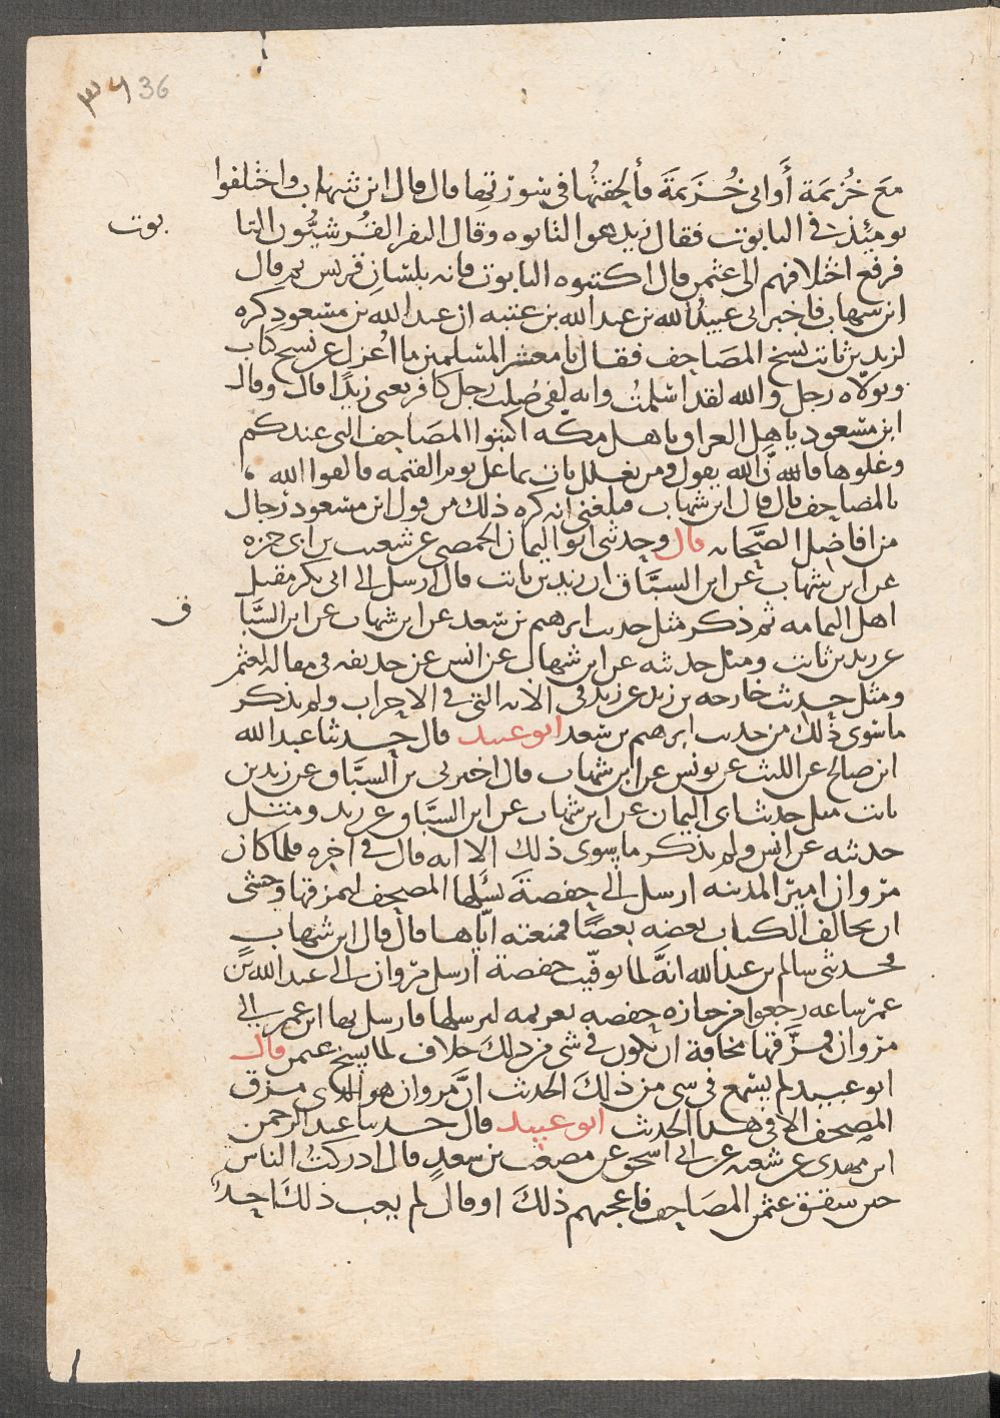 ٣٦ 36
مَعَ خُزَيمَة أَو ابى خُزَيمَةَ فألحقتُها فى سورتِها قال قال ابن شهاب واختلفوا
يوميئذ فى التابوت فقال زيد هو التابوه وقال النفر القُرشيُّون التا
بوت
فرفع اختلافهم الى عثمن فقال اكتبوه التابوت فانه بلسان قريس ثم قال
ابن شهاب فاخبرنى عبيدُ الله بن عبد الله بن عتبه ان عبد الله بن مسعود كره
لزيد بن ثابت نسخ المصَاحِف فقال يا معشر المسلمين أاُعزل عن نسخ كتاب
ويولاه رجل والله لقد اسلمتُ وانه لفى صُلب رجل كافر يعنى زيدًا قال وقال
ابن مسعود يا هل العراق يا هل مكه اكتبوا المصَاحِف التى عندكم
وغلوها فان الله يقول ومن يغلل يات بما غل يوم القيمه فالقوا الله
بالمصاحف قال قال ابن شهاب فبلغنى انه كره ذلك من قول ابن مسعود رجال
من افاضل الصَّحابه قال وحدثنى ابو اليمان الحمصى عن شعيب بن ابى حمزه
عن ابن شهاب عن ابن السبَّاق ان زيد بن ثابت قال ارسل الى ابى بكر مقتل
اهل اليمامه ثم ذكر مثل حديث ابرهيم بن سعد عن ابن شهاب عن ابن السَّبا
ق
عن زيد بن ثابت ومثل حديثه عن ابن شهاب عن انس عن حذيفه فى مقالته لعثمن
ومثل حديث خارجه بن زيد عن زيد فى الايه التى فى الاحزاب ولم يذكر
ما سوى ذلك من حديث ابرهيم بن سعد ابو عبيد قال حدثنا عبد الله
ابن صالح عن الليث عن يونس عن ابن شهاب قال اخبرنى بن السبَّاق عن زيد بن
ثابت مثل حديث ابى اليمان عن ابن شهاب عن ابن السبَّاق عن زيد ومثل
حديثه عن انس ولم يذكر ما سوى ذلك الا انه قال فى اخره فلما كان
مروان اميرَ المدينه ارسل الى حفصةَ يسَلها المصحف ليمزقها وخشى
ان يخالف الكتاب بعضه بعضًا فمنعته ايّاها قال قال ابن شهاب
فحدثنى سالم بن عبد الله انهَّ لما توفّيت حفصة ارسل مروان الى عبد الله بن
عمر ساعه رجعوا من جنازه حفصه بعزيمه ليرسلها فارسل بها ابن عمر الى
مروان فمزَّقها مخافة ان يكون فى شى من ذلك خلاف لما نسخ عثمن قال
ابو عبيد لم يسمع فى شى من ذلكَ الحديث انَّ مروان هو الذى مزق
المصحف الا فى هذا الحديث ابو عبيد قال حدثنا عبد الرحمن
ابن مهدى عن شعبه عن ابى اسحق عن مصعب بن سعدٍ قال ادركتُ الناس
حين شقق عثمن المصَاحِف فاعجبهم ذلكَ او قال لم يعب ذلكَ احدٌ